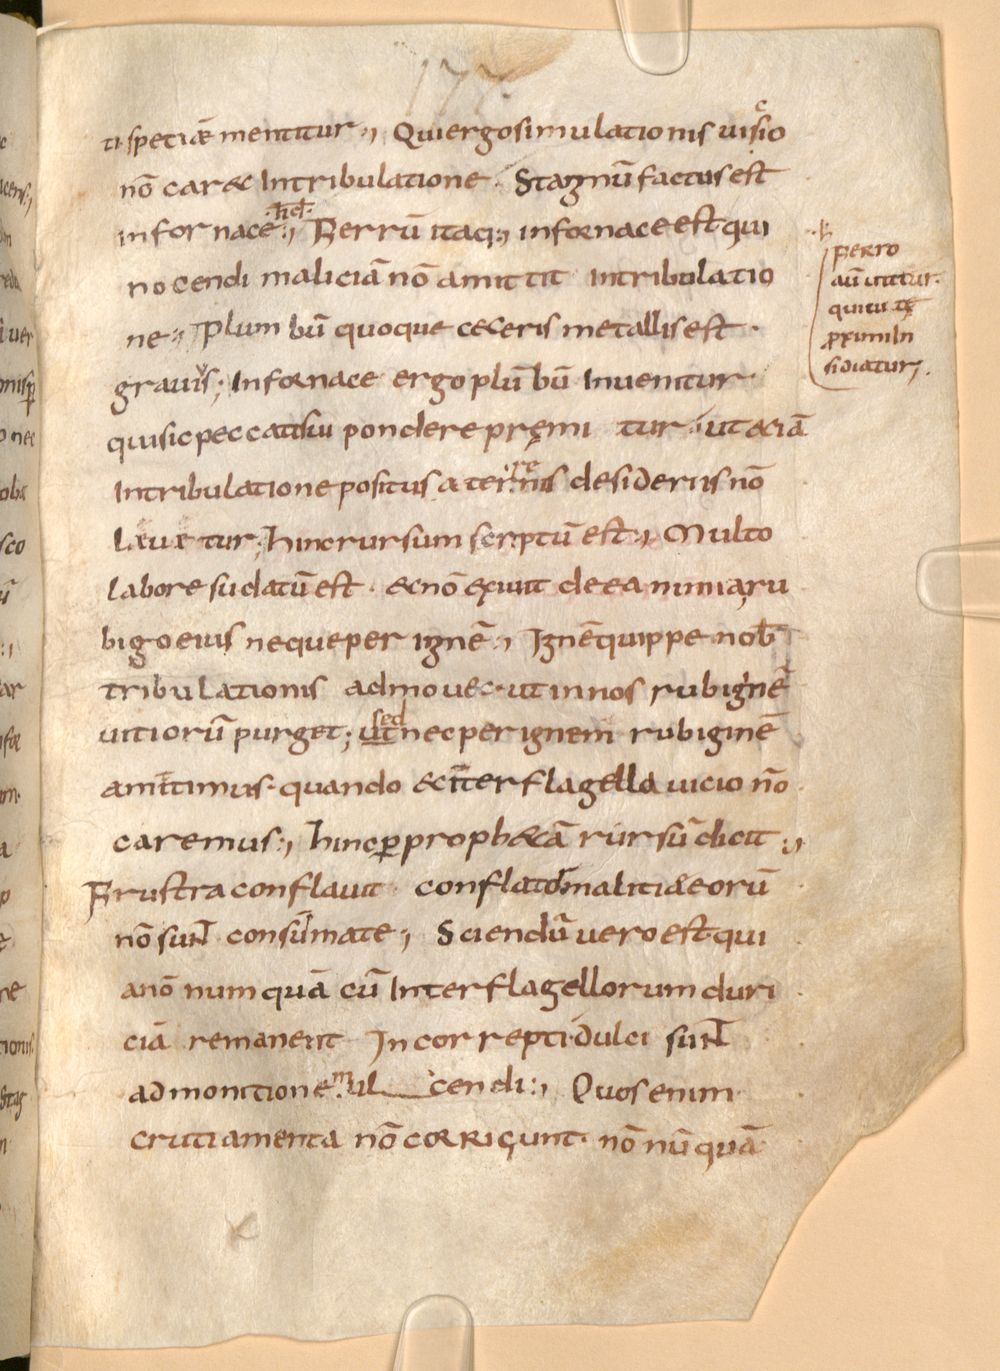 177.
ti spetiæ mentitur ·, Qui ergo simulationis uisio
nō car&c In tribulatione. Stagnū factus est
in fornace :, Ferrū itaq; in fornace est qui
nocendi maliciā nō amittit in tribulatio
ne ·, Plumbū quoque ceteris metallis est ·
grauis; In fornace ergo plūbū Inuenitur ·
qui sic peccati sui pondere pręmi tur · ut &ciā
In tribulatione positus a terrenis desideriis nō
leuetur; hinc rursum scriptū est ·, Multo
labore sudatū est · &nō exiuit de ea nimia ru
bigo eius neque per ignē ·, Ignē quippe nob
tribulationis admouet · ut in nos rubiginē
uitiorū purget; sed nec per ignem rubiginē
amittimus · quando &inter flagella uicio nō
caremus :, hinc p proph&cā rursū dicit ·,
Frustra conflauit conflator malitiæ eorū
non sunt consūmate ·, Sciendū uero est · qui
a nō numquā cū Inter flagellorum duri
ciā remanent Incorrepti · dulci sunt
admonitione mul cendi :, Quos enim
crutiamenta nō corrigunt · nō nūquā
ferro
aū utitur ·
qui uitę
pximi In
sidiatur,